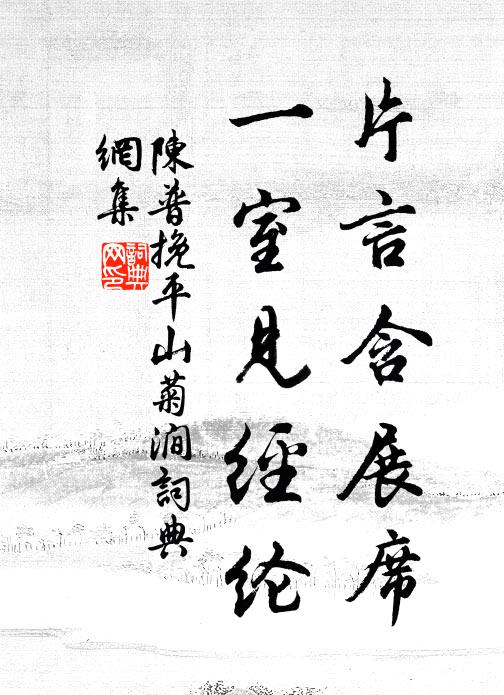 片言含展席
一室見經纶
陳普挽平山菊澗詞典
網集
詞典
网印